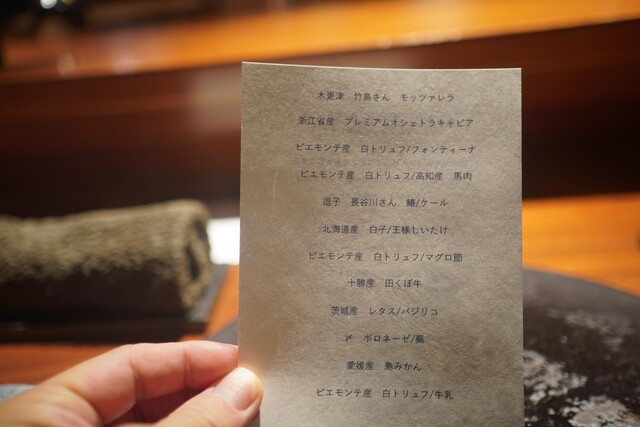 木更津　竹島さん　モッツァレラ
浙江省産　プレミアムオシェトラキャビア
ピエモンテ産　白トリュフ/フォンティーナ
ピエモンテ産　白トリュフ/高知産　馬肉
逗子　長谷川さん　鰆/ケール
北海道産　白子/王様しいたけ
ピエモンテ産　白トリュフ/マグロ節
十勝産　田くぼ牛
茨城産　レタス/バジリコ
〆　ボロネーゼ/蕪
愛媛産　島みかん
ピエモンテ産　白トリュフ/牛乳